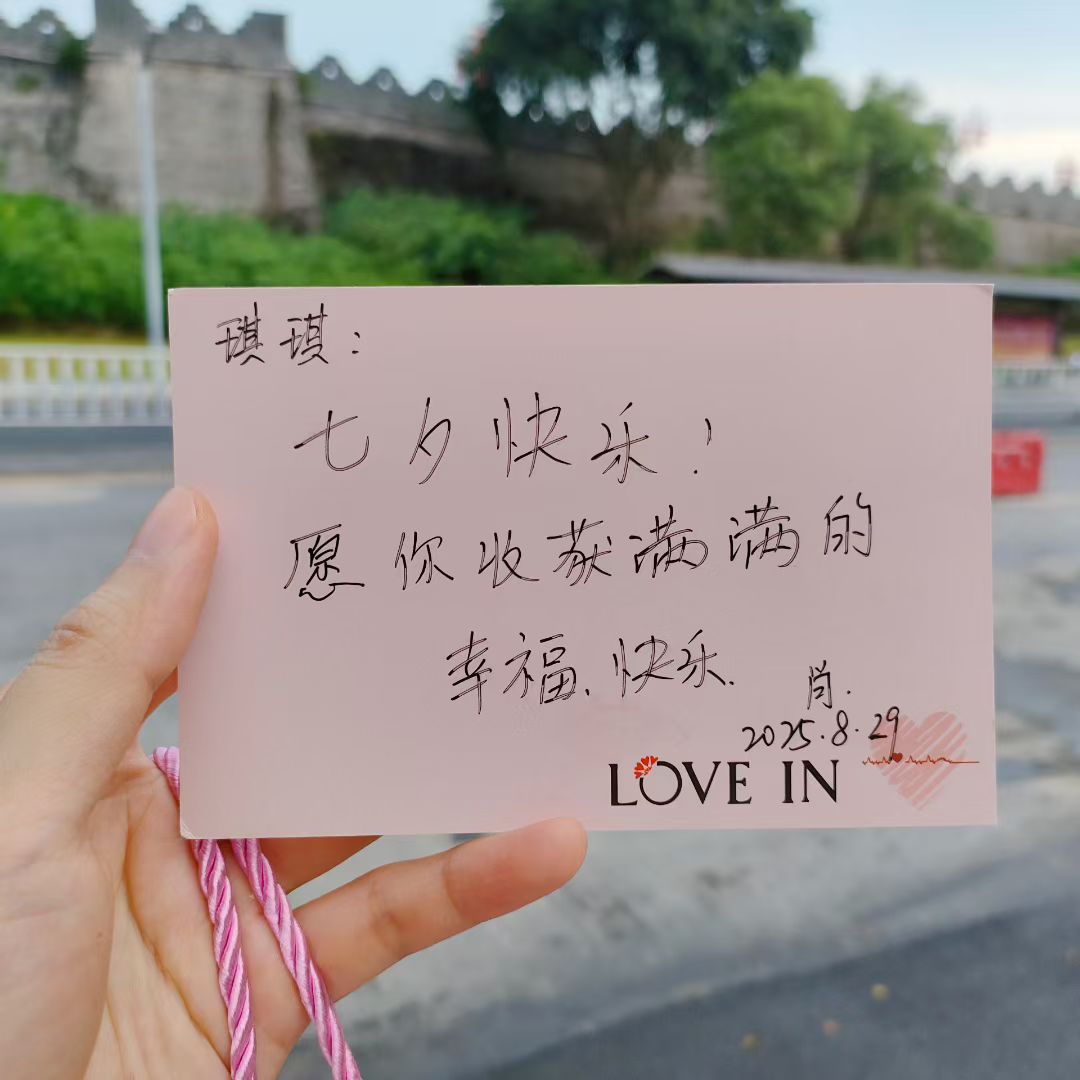 琪琪：
七夕快乐！
愿你收获满满的
幸福、快乐.
肖.
2025.8.29
LOVE IN